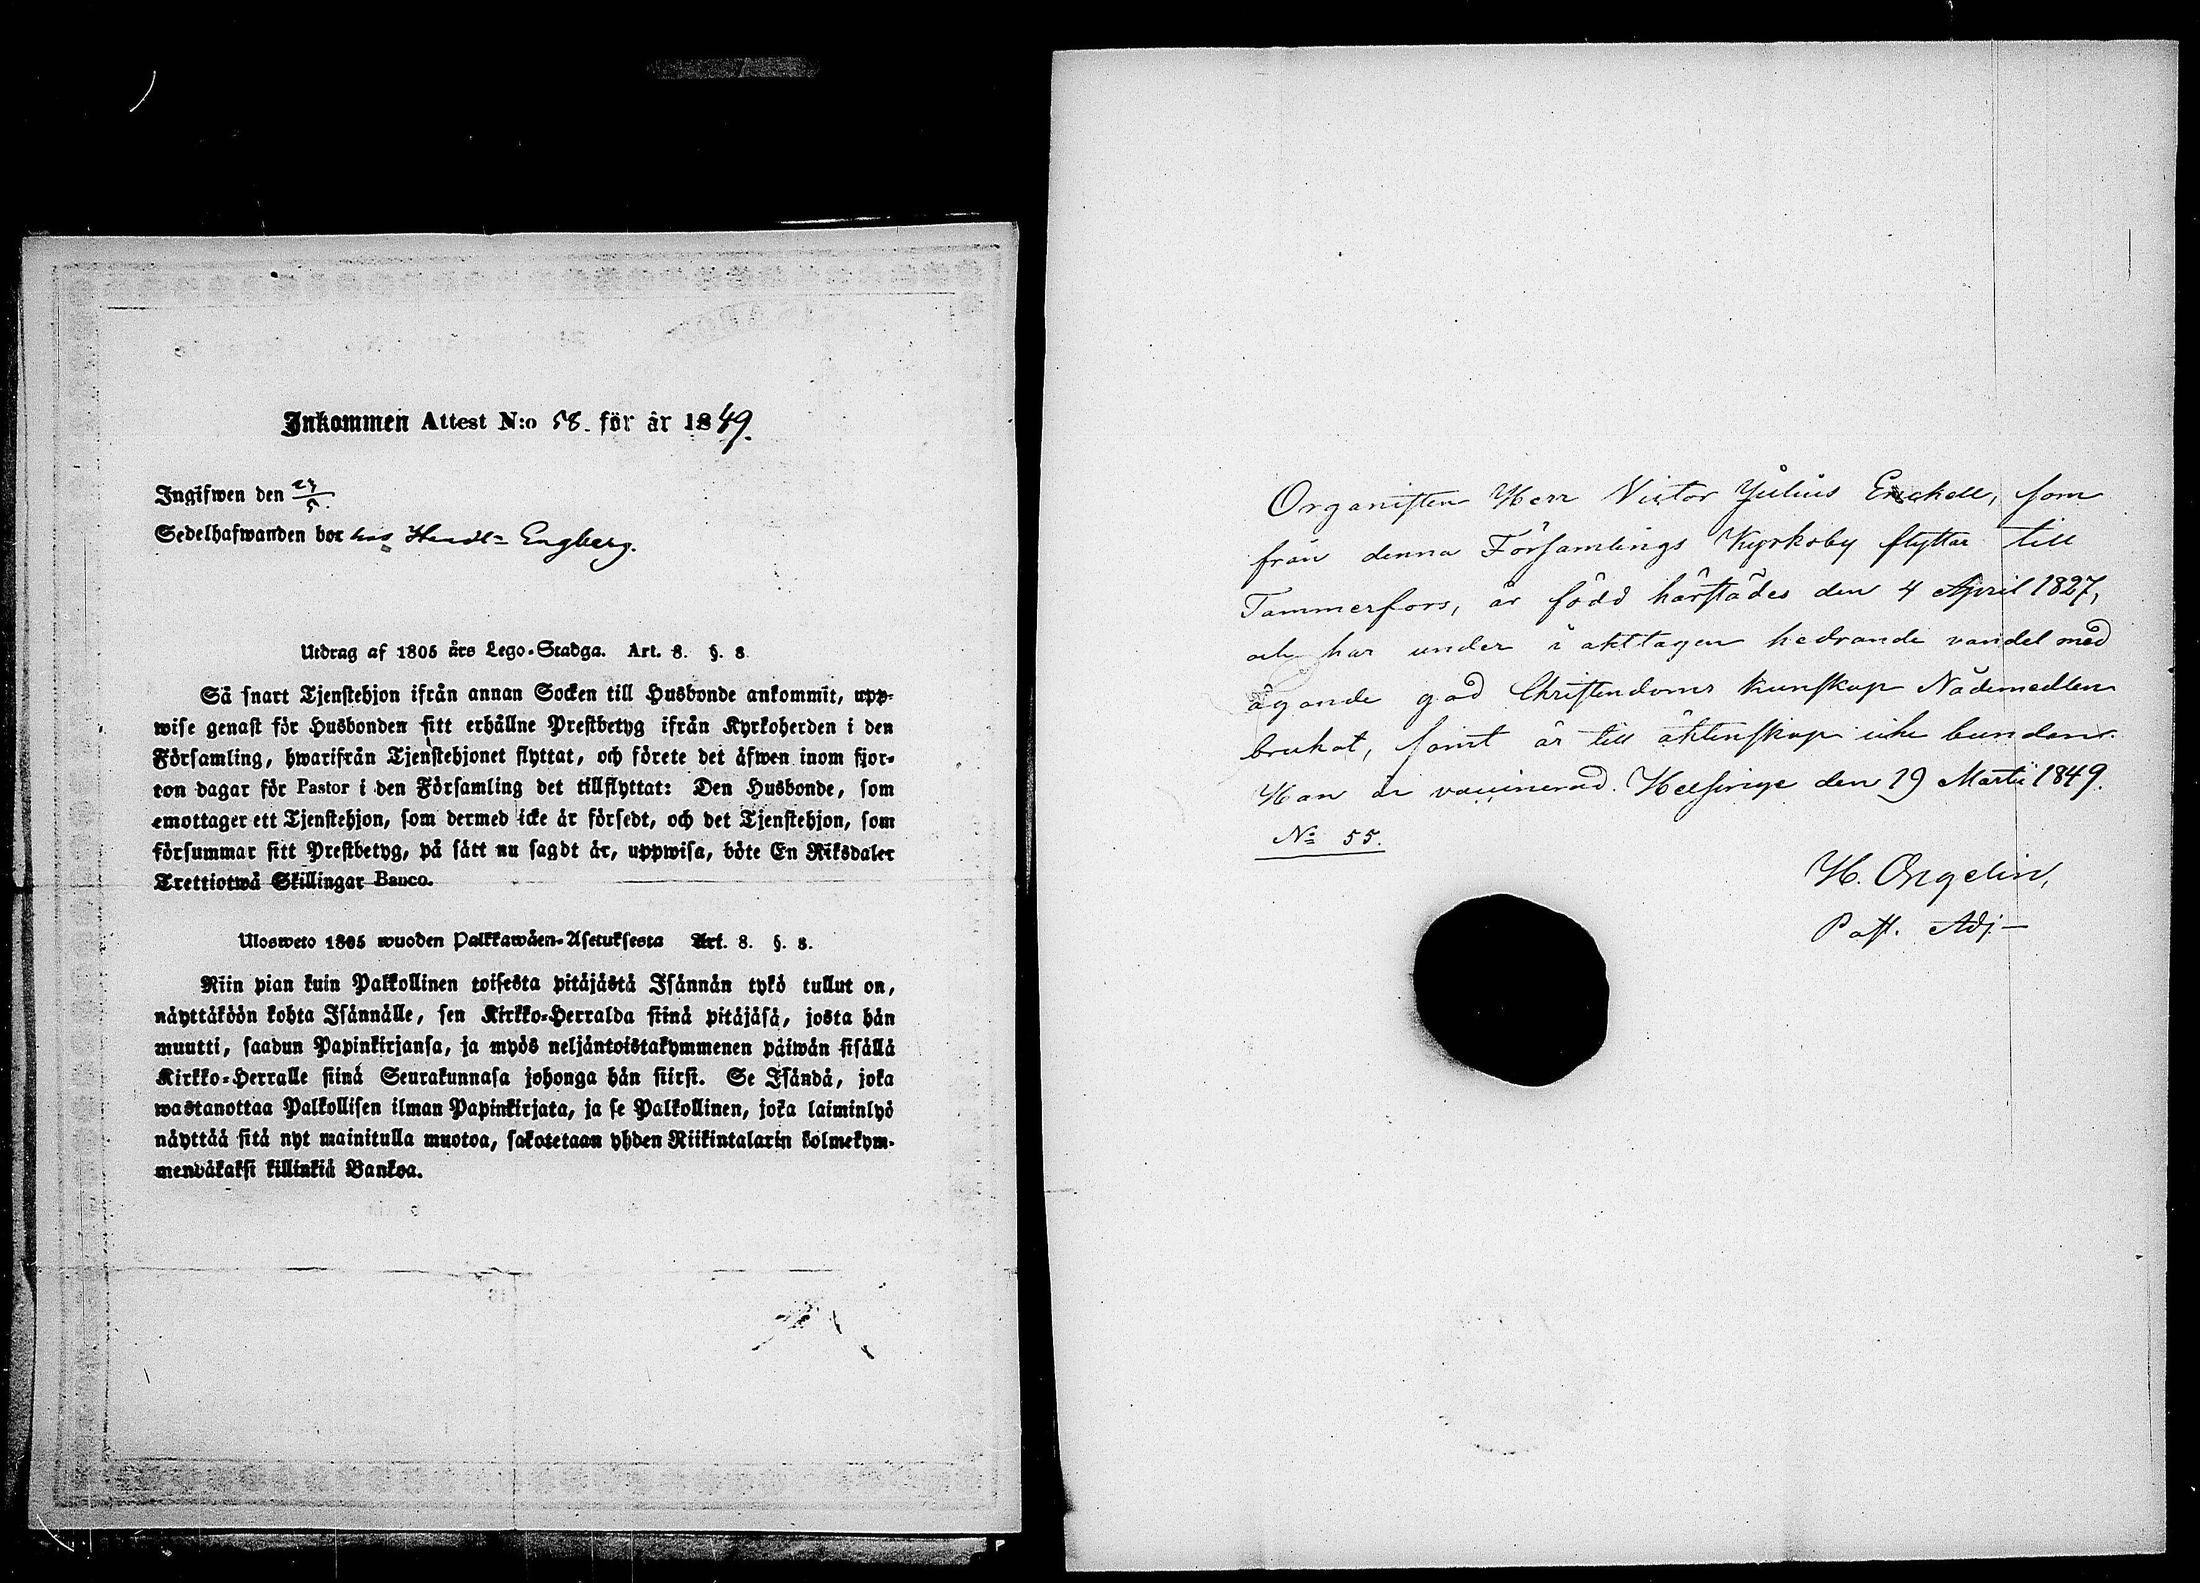 Inkommen Attest N:o 58. för år 1849.
Ingifwen den 23/5.
Sedelhafwanden bor hos Handl= Engberg.
Utdrag af 1805 års Lego-Stadga. Art. 8. §. 8.
Så snart Tjenstehjon ifrån annan Socken till Husbonde ankommit, upp-
wise genast för Husbonden sitt erhållne Prestbetyg ifrån Kyrkoherden i den
Församling, hwarifrån Tjenstehjonet flyttat, och förete det äfwen inom fjor-
ton dagar för Pastor i den Församling det tillflyttat: Den Husbonde, som
emottager ett Tjenstehjon, som dermed icke är försedt, och det Tjenstehjon, som
försummar sitt Prestbetyg, på sätt nu sagdt är, uppwisa, böte En Riksdaler
Trettiotwå Skillingar Banco.
Ulosweto 1805 wuoden Palkkawäen-Asetuksesta Art. 8. §. 8.
Niin pian kuin Palkollinen toisesta pitäjästä Isännän tykö tullut on,
näyttäköön kohta Isännälle, sen Kirkko-Herralda siinä pitäjäsä, josta hän
muutti, saadun Papinkirjansa, ja myös neljäntoistakymmenen päiwän sisällä
Kirkko-Herralle siinä Seurakunnasa johonga hän siirsi. Se Isändä, joka
wastanottaa Palkollisen ilman Papinkirjata, ja se Palkollinen, joka laiminlyö
näyttää sitä nyt mainitulla muotoa, sakotetaan yhden Riikintalarin kolmekym-
mendäkaksi killinkiä Bankoa.
Organisten Herr Victor Julius Enckell, som
från denna Församlings Kyrkoby flyttar till
Tammerfors, är född härstädes den 4 April 1827,
och har under i akttagen hedrande vandel med
ägande god Christendoms kunskap Nådemedlen
brukat, samt är till äktenskap icke bunden.
Han är vaccinerad. Helsinge den 19 Martii 1849.
No 55.
H. Ongelin,
Past. Adj.